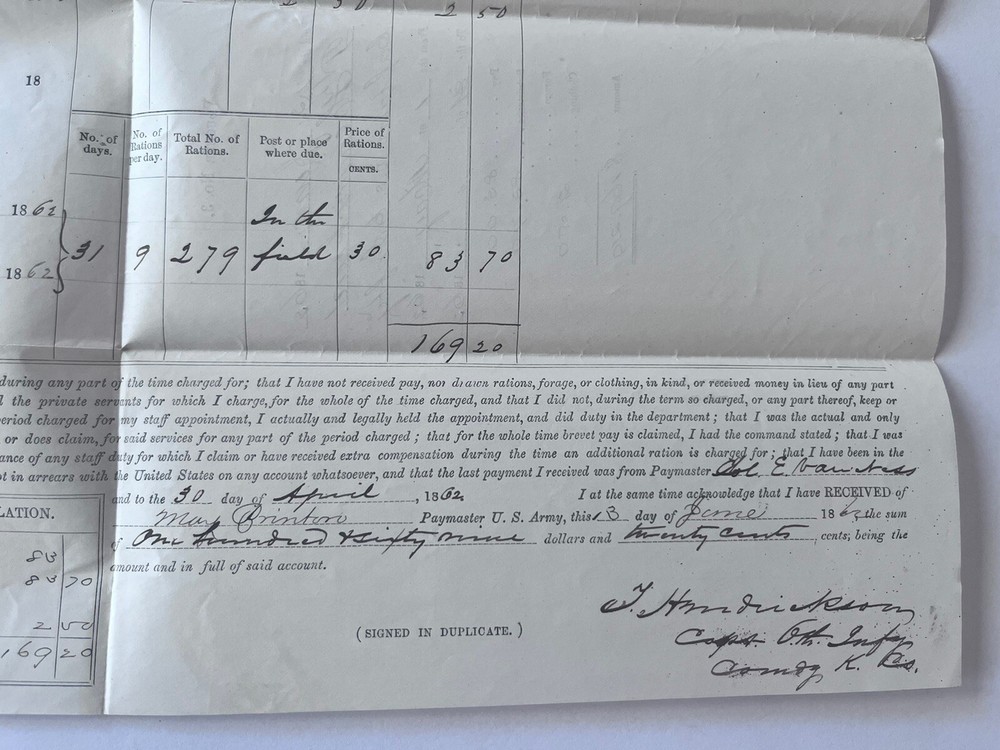 2 50
18
No. of days. No. of Rations per day. Total No. of Rations. Post or place where due. Price of Rations.
CENTS.
18 62 In the
31 9 279 field 30 83 70
18 62
169 20
during any part of the time charged for; that I have not received pay, nor drawn rations, forage, or clothing, in kind, or received money in lieu of any part
the private servants for which I charge, for the whole of the time charged, and that I did not, during the term so charged, or any part thereof, keep or
period charged for my staff appointment, I actually and legally held the appointment, and did duty in the department; that I was the actual and only
or does claim, for said services for any part of the period charged; that for the whole time brevet pay is claimed, I had the command stated; that I was
ance of any staff duty for which I claim or have received extra compensation during the time an additional ration is charged for; that I have been in the
ot in arrears with the United States on any account whatsoever, and that the last payment I received was from Paymaster Col. E. Van Ness
and to the 30 day of April, 1862. I at the same time acknowledge that I have RECEIVED of
Brinton Paymaster U. S. Army, this 13 day of June 1862 the sum
of One hundred & sixty nine dollars and twenty cents, cents, being the
amount and in full of said account.
LATION.
83
83 70
2 50
169 20
(SIGNED IN DUPLICATE.)
T. Hendrickson
Capt. 6th. Infy
Comdg K. Co.